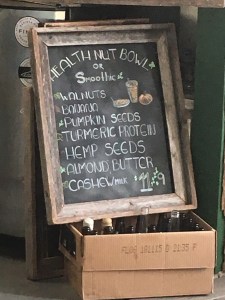 HEALTH NUT BOWL
OR
Smoothie
WALNUTS
BANANA
PUMPKIN SEEDS
TURMERIC PROTEIN
HEMP SEEDS
ALMOND BUTTER
CASHEW MILK $11.9